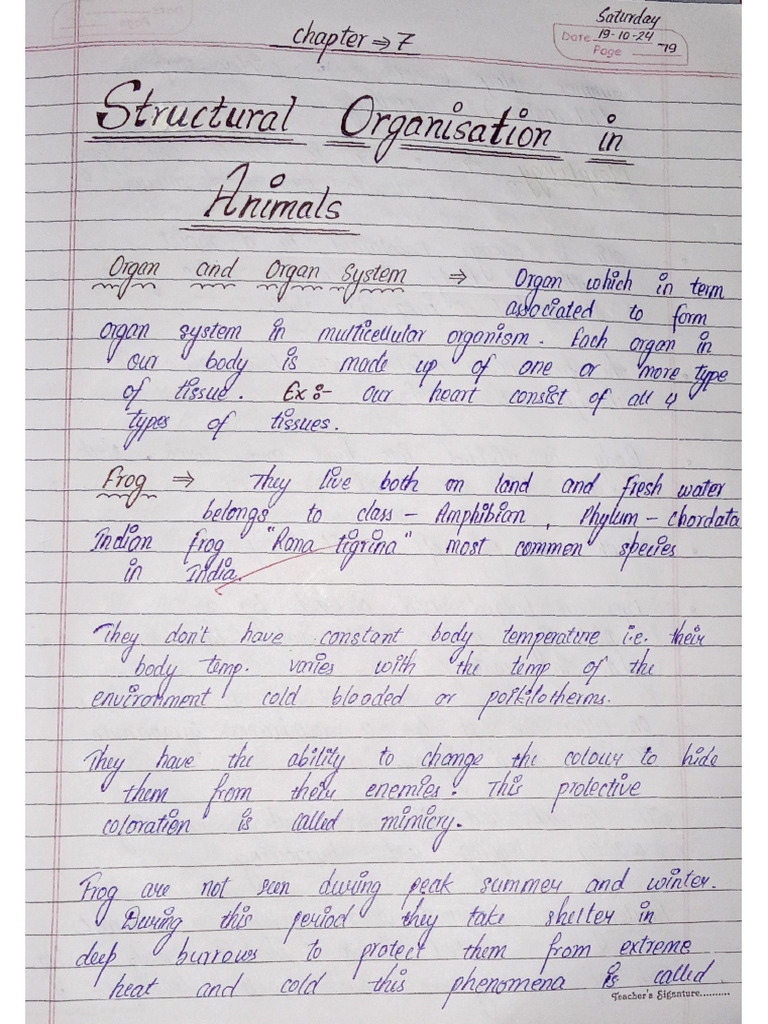 Saturday
Date 19-10-24
Page 79
Chapter ⇒ 7
Structural Organisation in
Animals
Organ and Organ System ⇒ Organ which in term
associated to form
organ system in multicellular organism. Each organ in
our body is made up of one or more type
of tissue. Ex :- our heart consist of all 4
types of tissues.
Frog ⇒ They live both on land and fresh water
belongs to class - Amphibian, Phylum - Chordata
Indian frog "Rana tigrina" most common species
in India.
They don't have constant body temperature i.e. their
body temp. varies with the temp of the
environment cold blooded or poikilotherms.
They have the ability to change the colour to hide
them from their enemies. This protective
coloration is called mimicry.
Frog are not seen during peak summer and winter.
During this period they take shelter in
deep burrows to protect them from extreme
heat and cold this phenomena is called
Teacher's Signature..........